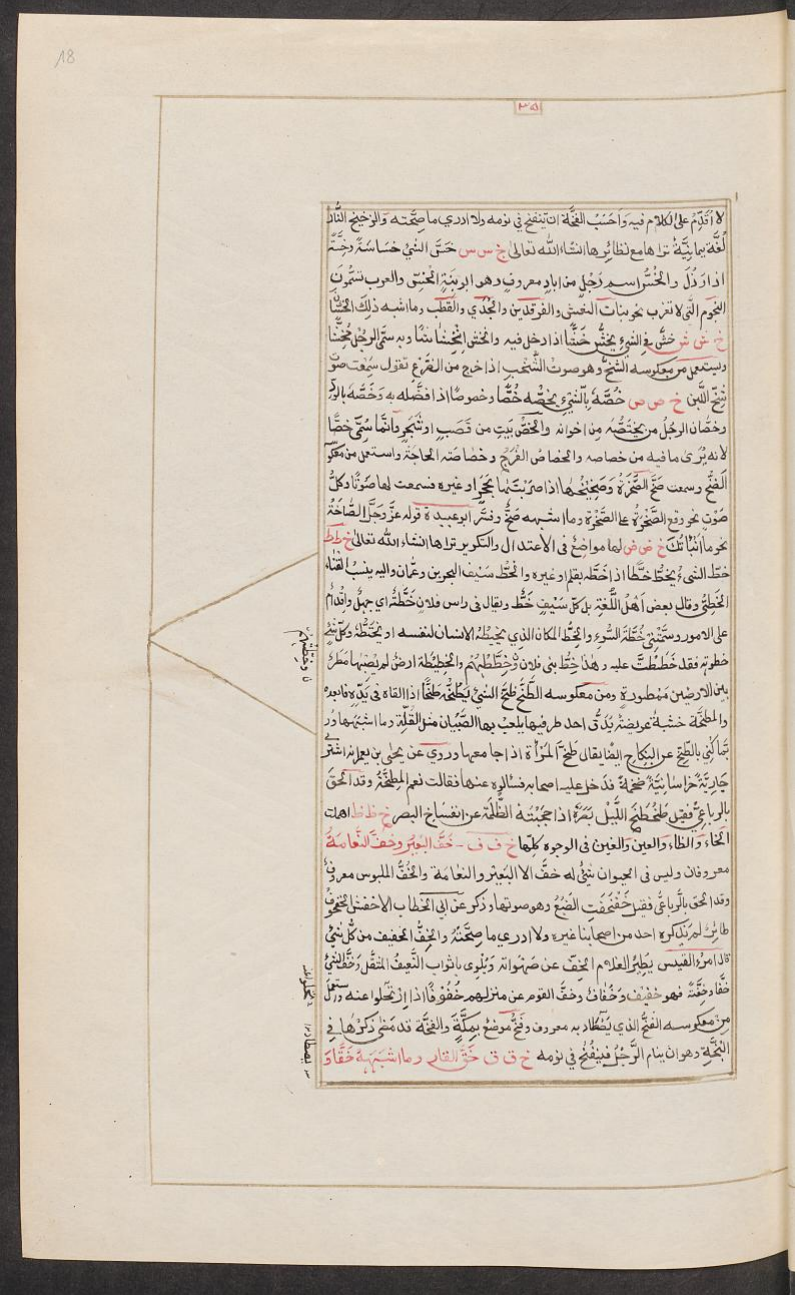 18
٣٥
لا اُقَدِّمُ على الكلام فيه وَاحَسَبُ الفَخَّة ان يَنفخ في نومه ولا ادري ما صحّته والزخيخ النّارُ
لُغَة يمانيَّةُ تراها مع نظائرها انشاءالله تعالى خ س س خسَّ الشئُ خسَاسَةً وخِسَّةً
اذا رَذُلَ والخُسُّ اسم رَجُل من اياد معروفٍ وهو ابو بنة الخسّ والعرب تسمّون
النجوم التّى لا تغرب نحو بنات النعش والفرقدين والجُدي والقُطب وما اشبه ذلك الخسّان
خ ش ش خشّ في الشئ يخشّ خشًّا اذا دخل فيه وانخشّ انخشاشًا وبه سمّى الرجل مخشًّا
ويستعمل من معكوسه الشخّ وهو صوت الشّخب اذا خرج من الضرع تقول سمعت صوتَ
شخّ اللّبن خ ص ص خُصَّهُ بالشئ يخصّه خصًّا وخصوصًا اذا فضّله به وخصّه بالودّ
وخصّان الرجُل من يختصّه من اخوانه والخصّ بيت من قصب او شجر وانّما سمّى خصًّا
لانه يُرى ما فيه من خصاصه والخصاص الفُرَجُ وخصاصته الحاجة واستعمل من معكو
الصّخّ وسمعت صَخَّ الصَّخْرَة وصخيخها اذا ضربتها بحجر او غيره فسمعت لها صوتًا وكلُّ
صوتٍ نحو وقع الصَّخرة على الصّخرة وما اشبهه صخٌّ وفسّر ابو عبيدة قوله عزّ وجلّ الصّاخّةُ
نحو ما انبأتك خ ض ض لها مواضع فى الاعتدال والتكرير تراها انشاء الله تعالى خ ط ط
خطّ الشئ يخطّ خطًّا اذا خطّه بقلم او غيره والخطّ سيف البحرين وعمّان واليه ينسبُ القناه
الخطّىّ وقال بعض اهل اللّغة بل كلّ سيفٍ خَطّ ويقال في راس فلان خُطَّة اى جهلٌ واقدامٌ
على الامور وسمتني خُطَّةَ السُّوء والخِطُّ المكان الذي يختطّه الانسان لنفسه او يختطّه وكلّ شئ
خطوته فقد خَطَطْتَ عليه وهذا خِطُّ بنى فلان وخطّطهم والخطيطة ارضٌ لم يصبها مَطَرٌ
بين الارضين ممطورةٍ ومن معكوسه الطّخّ طخّ الشئ يطخّه طخًّا اذا القاه فى يده فابعده
والمطخّة خشبةٌ عريضة يدقّ احد طرفيها يلعب بها الصّبيان مثل القلة وما اشبهها ور
بّما كُنى بالطّخّ عن النكاح ايضا يقال طخّ المرأة اذا جامعها وروي عن يحيى بن يعمر انه اشترى
جارِيَةً خراسانيّةً ضخمةً فدخل عليه اصحابه فسألوه عنها فقالت نعم المِطخّةُ وقد الحق
بالرباعيّ فقيل طخطخ اللّيل بَصَرَهُ اذا حجبته الظّلمة عن انفساخ البصر خ ظ ظ اهملت
الخاء والظاء والعين والغين فى الوجوه كلّها خ ف ف - خفّ البعير وخفّ النّعامة
معروفان وليس فى الحيوان شئ له خفّ الا البعير والنعامة والخفّ الملبوس معروفٌ
وقد الحق بالرباعيّ فقيل خفخفت الضَّبع وهو صوتها وذكر عن ابي الخطاب الاخفش الخفخوف
طائر لم يذكره احد من اصحابنا غيره ولا ادري ما صحّته والخِفّ الخفيف من كلّ شئ
قال امرؤ القيس يُطير الغلام الخِفّ عن صهواته ويُلوى باثواب العنيف المثقّل وخفّ الشئ
خفًّا وخفّة فهو خفيف وخُفاف وخفّ القوم عن منزلهم خفوفًا اذا ارتحلوا عنه واستعمل
من معكوسه الفخّ الذي يصطاد به معروف وفخّ موضع بمكّةَ والفخّة قد مضى ذكرها فى
النخّة وهو ان ينام الرّجُل فينفخ في نومه خ ق ق خقّ القار وما اشبهه خقًّا و
ن وخططهم
يصطاد